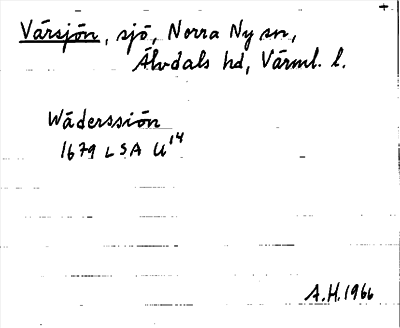 +
Värsjön, sjö, Norra Ny sn,
Älvdals hd, Värml. l.
Wäderssiön
1679 LSA U14
A.H. 1966